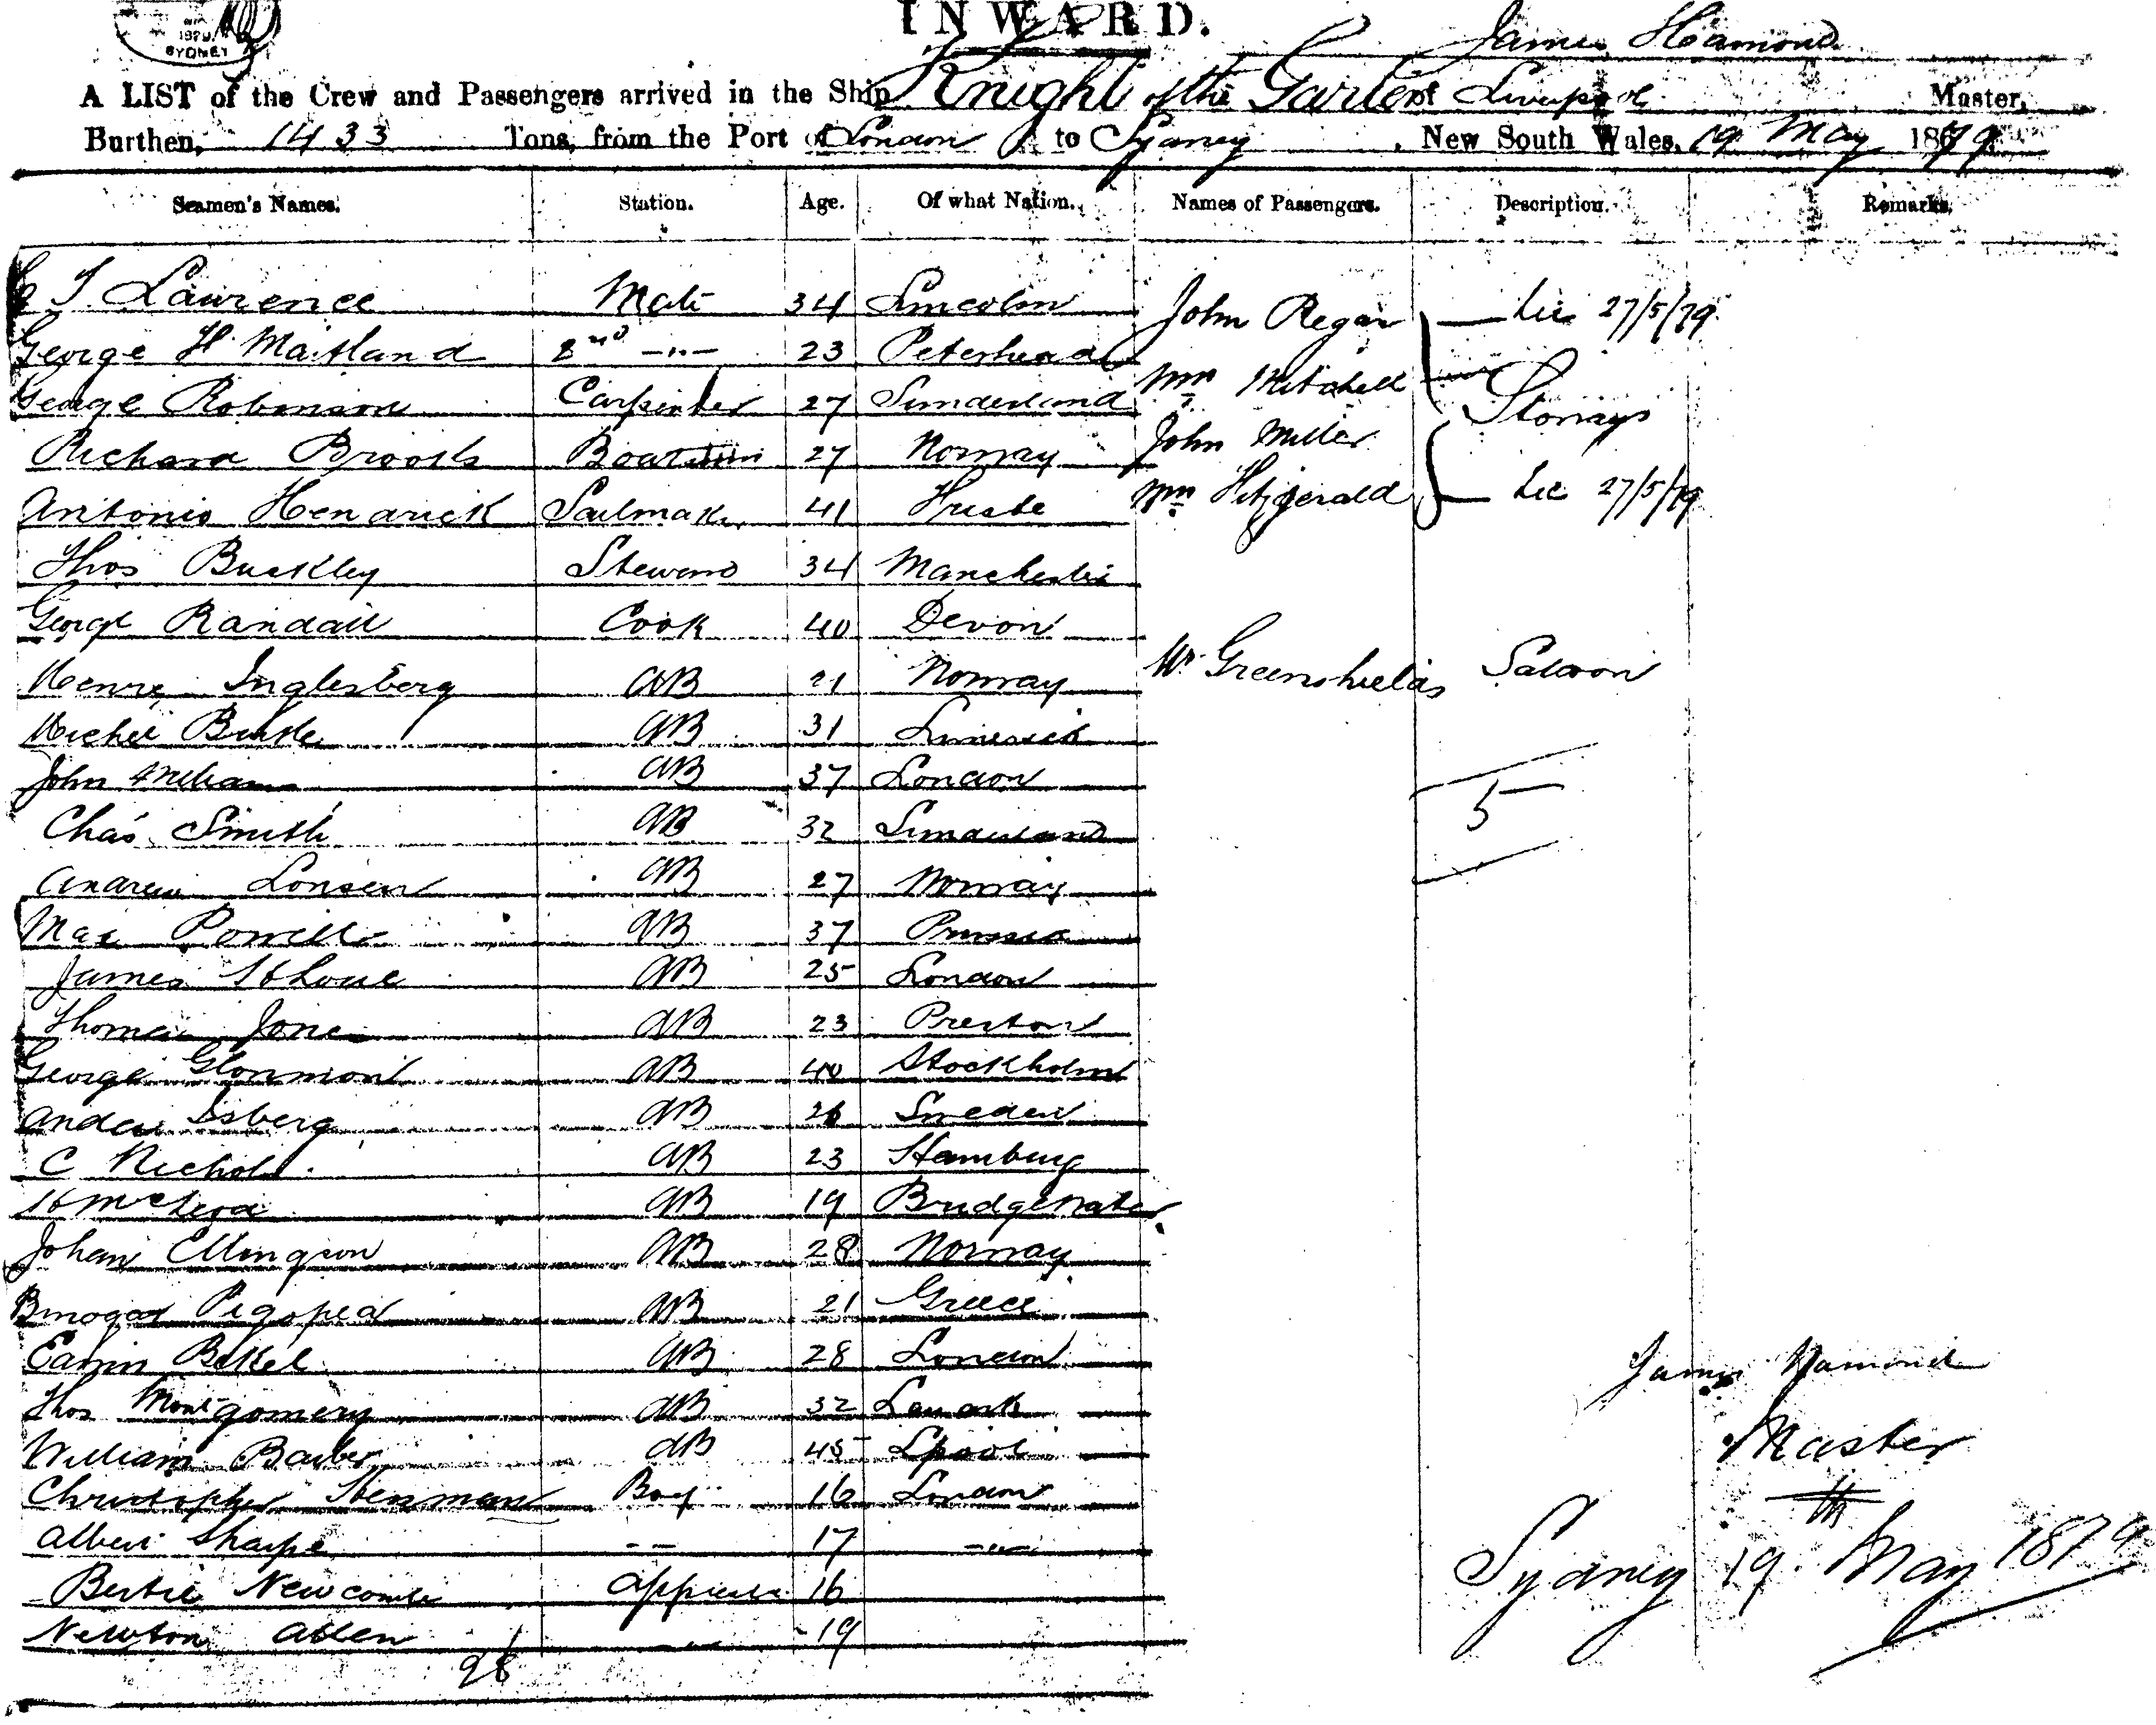 1879
SYDNEY
INWARD.
James Hamond
A LIST of the Crew and Passengers arrived in the Ship Knight of the Garter of Liverpool Master,
Burthen, 1433 Tons, from the Port of London to Sydney, New South Wales, 19 May 1879
Seamen's Names. Station. Age. Of what Nation. Names of Passengers. Description. Remarks.
J. Lawrence Mate 34 Lincoln
John Regan Lic 27/5/79
George H. Maitland 2nd —"— 23 Peterhead
Wm Mitchell
George Robinson Carpenter 27 Sunderland
Richard Brooks Boatswain 27 Norway John Miller
Antonio Hendrick Sailmaker 41 Wm Fitzgerald Lic 27/5/79
Thos Buckley Steward 34 Manchester
George Randall Cook 40 Devon
Henry Inglesberg AB 21 Norway Mr Greenshields Saloon
Burke AB 31 Limerick
John Williams AB 37 London
5
Chas Smith AB 32 Sunderland
Andrew Lonsen AB 27 Norway
Max Powell AB 37 Prussia
James AB 25 London
Thomas Jones AB 23 Preston
George AB 40 Stockholm
Isberg AB 26 Sweden
C Nichols AB 23 Hamburg
H McLeod AB 19 Bridgewater
Johan Ellingson AB 28 Norway
AB 21 Greece
AB 28 London
James Hamond
Thos Montgomery AB 32 Lanark
Master
William Barber AB 45 Lpool
Christopher Boy 16 London
Albert Sharpe -- 17 —"—
Sydney 19th May 1879
Bertie Newcombe 16
Newton Allen —"— 19
28